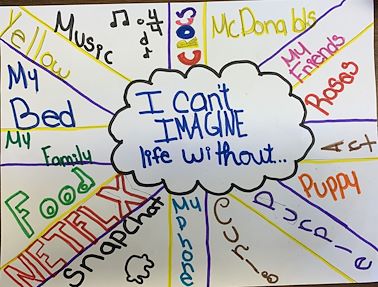 I can't
IMAGINE
life without...
Yellow
Music
4/4
CROCS
McDonalds
My
Friends
Rosas
Art
Puppy
My
phone
Snapchat
NETFLIX
Food
My Family
My
Bed